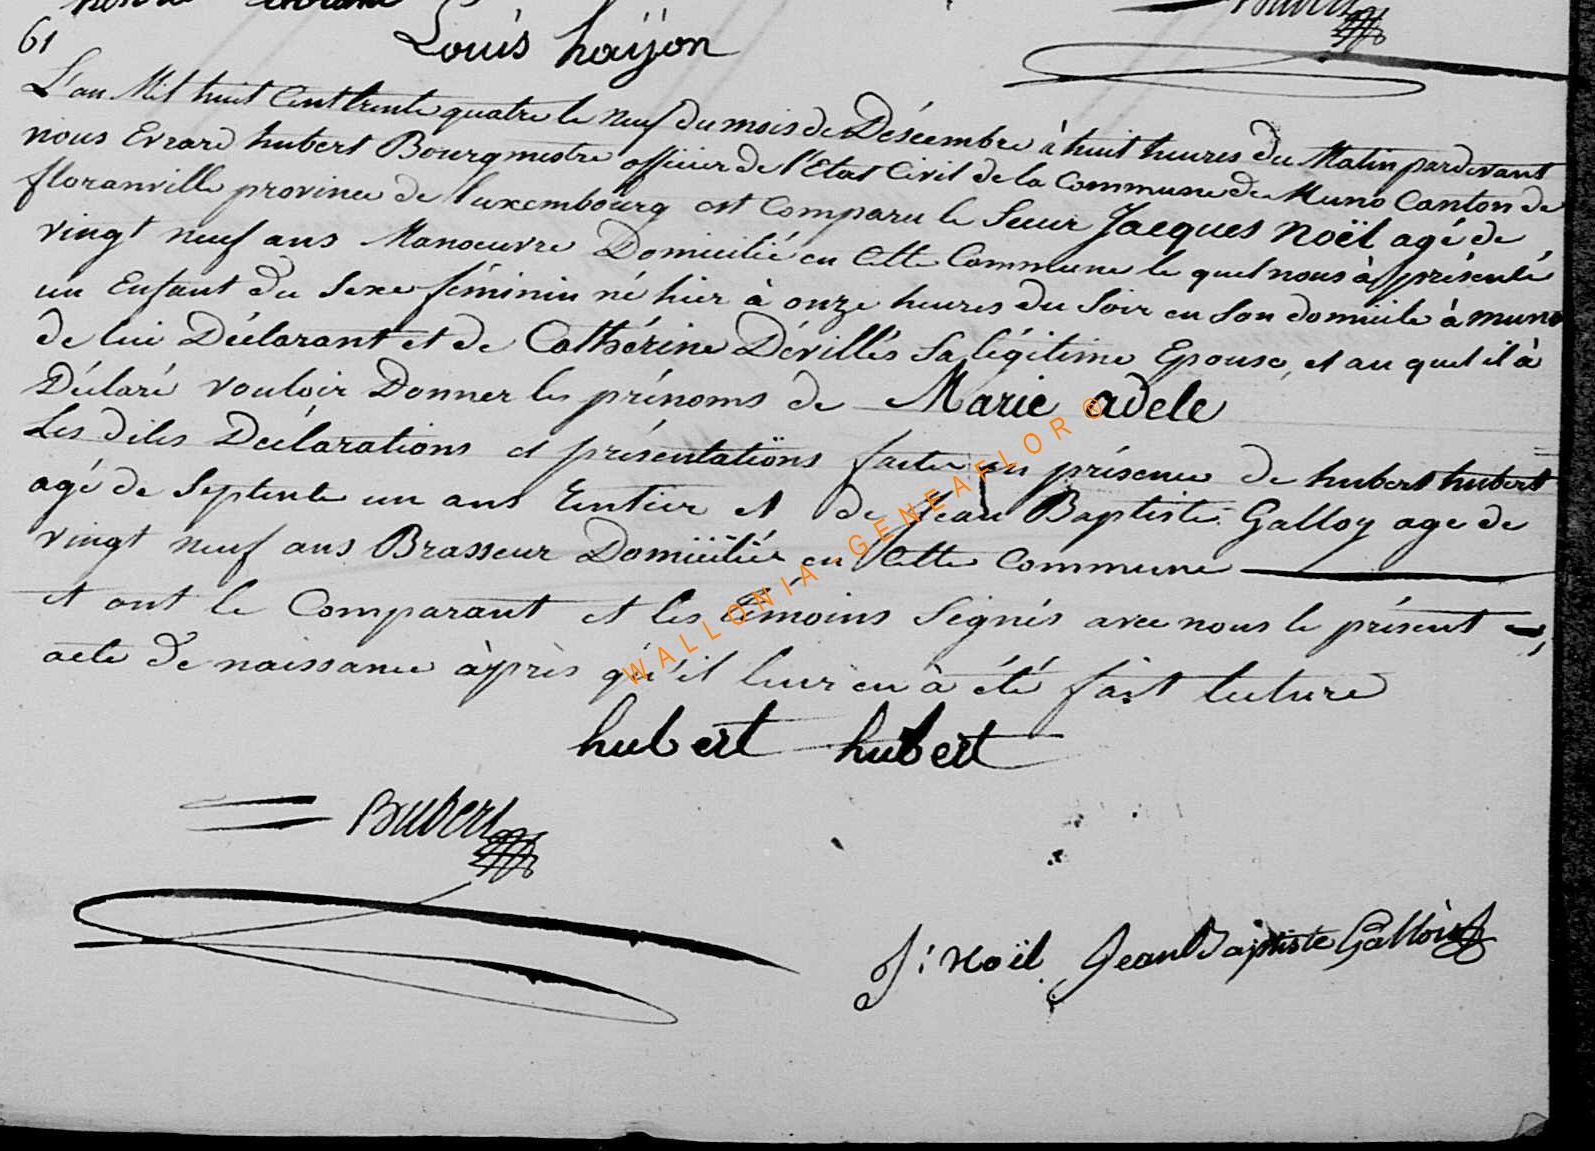 61
Louis hayon
L'an Mil huit Cent trente quatre le neuf du mois de Désembre à huit heures du Matin pardevant
nous Evrard hubert Bourgmestre officier de l'Etat Civil de la Commune de Muno Canton de
floranville province de luxembourg est Comparu le Sieur Jacques Noël agé de
vingt neuf ans Manoeuvre Domicilié en Cette Commune le quel nous à présenté
un Enfant du Sexe féminin né hier à onze heures du Soir en son domicile à muno
de lui Déclarant et de Cathérine Dévillés Sa légitime Epouse, et au quel il à
Déclaré vouloir Donner les prénoms de Marie adele
Les dites Déclarations et présentations faites en présence de hubert hubert
agé de Septente un ans Rentier et de Jean Baptiste Galloy age de
vingt neuf ans Brasseur Domicilié en Cette Commune
et ont le Comparant et les témoins Signés avec nous le présent
acte de naissance àprès qu'il leur en à été fait lecture
hubert hubert
J: Noël Jean Baptiste Galloy
WALLONIA-GENEAFLOR©